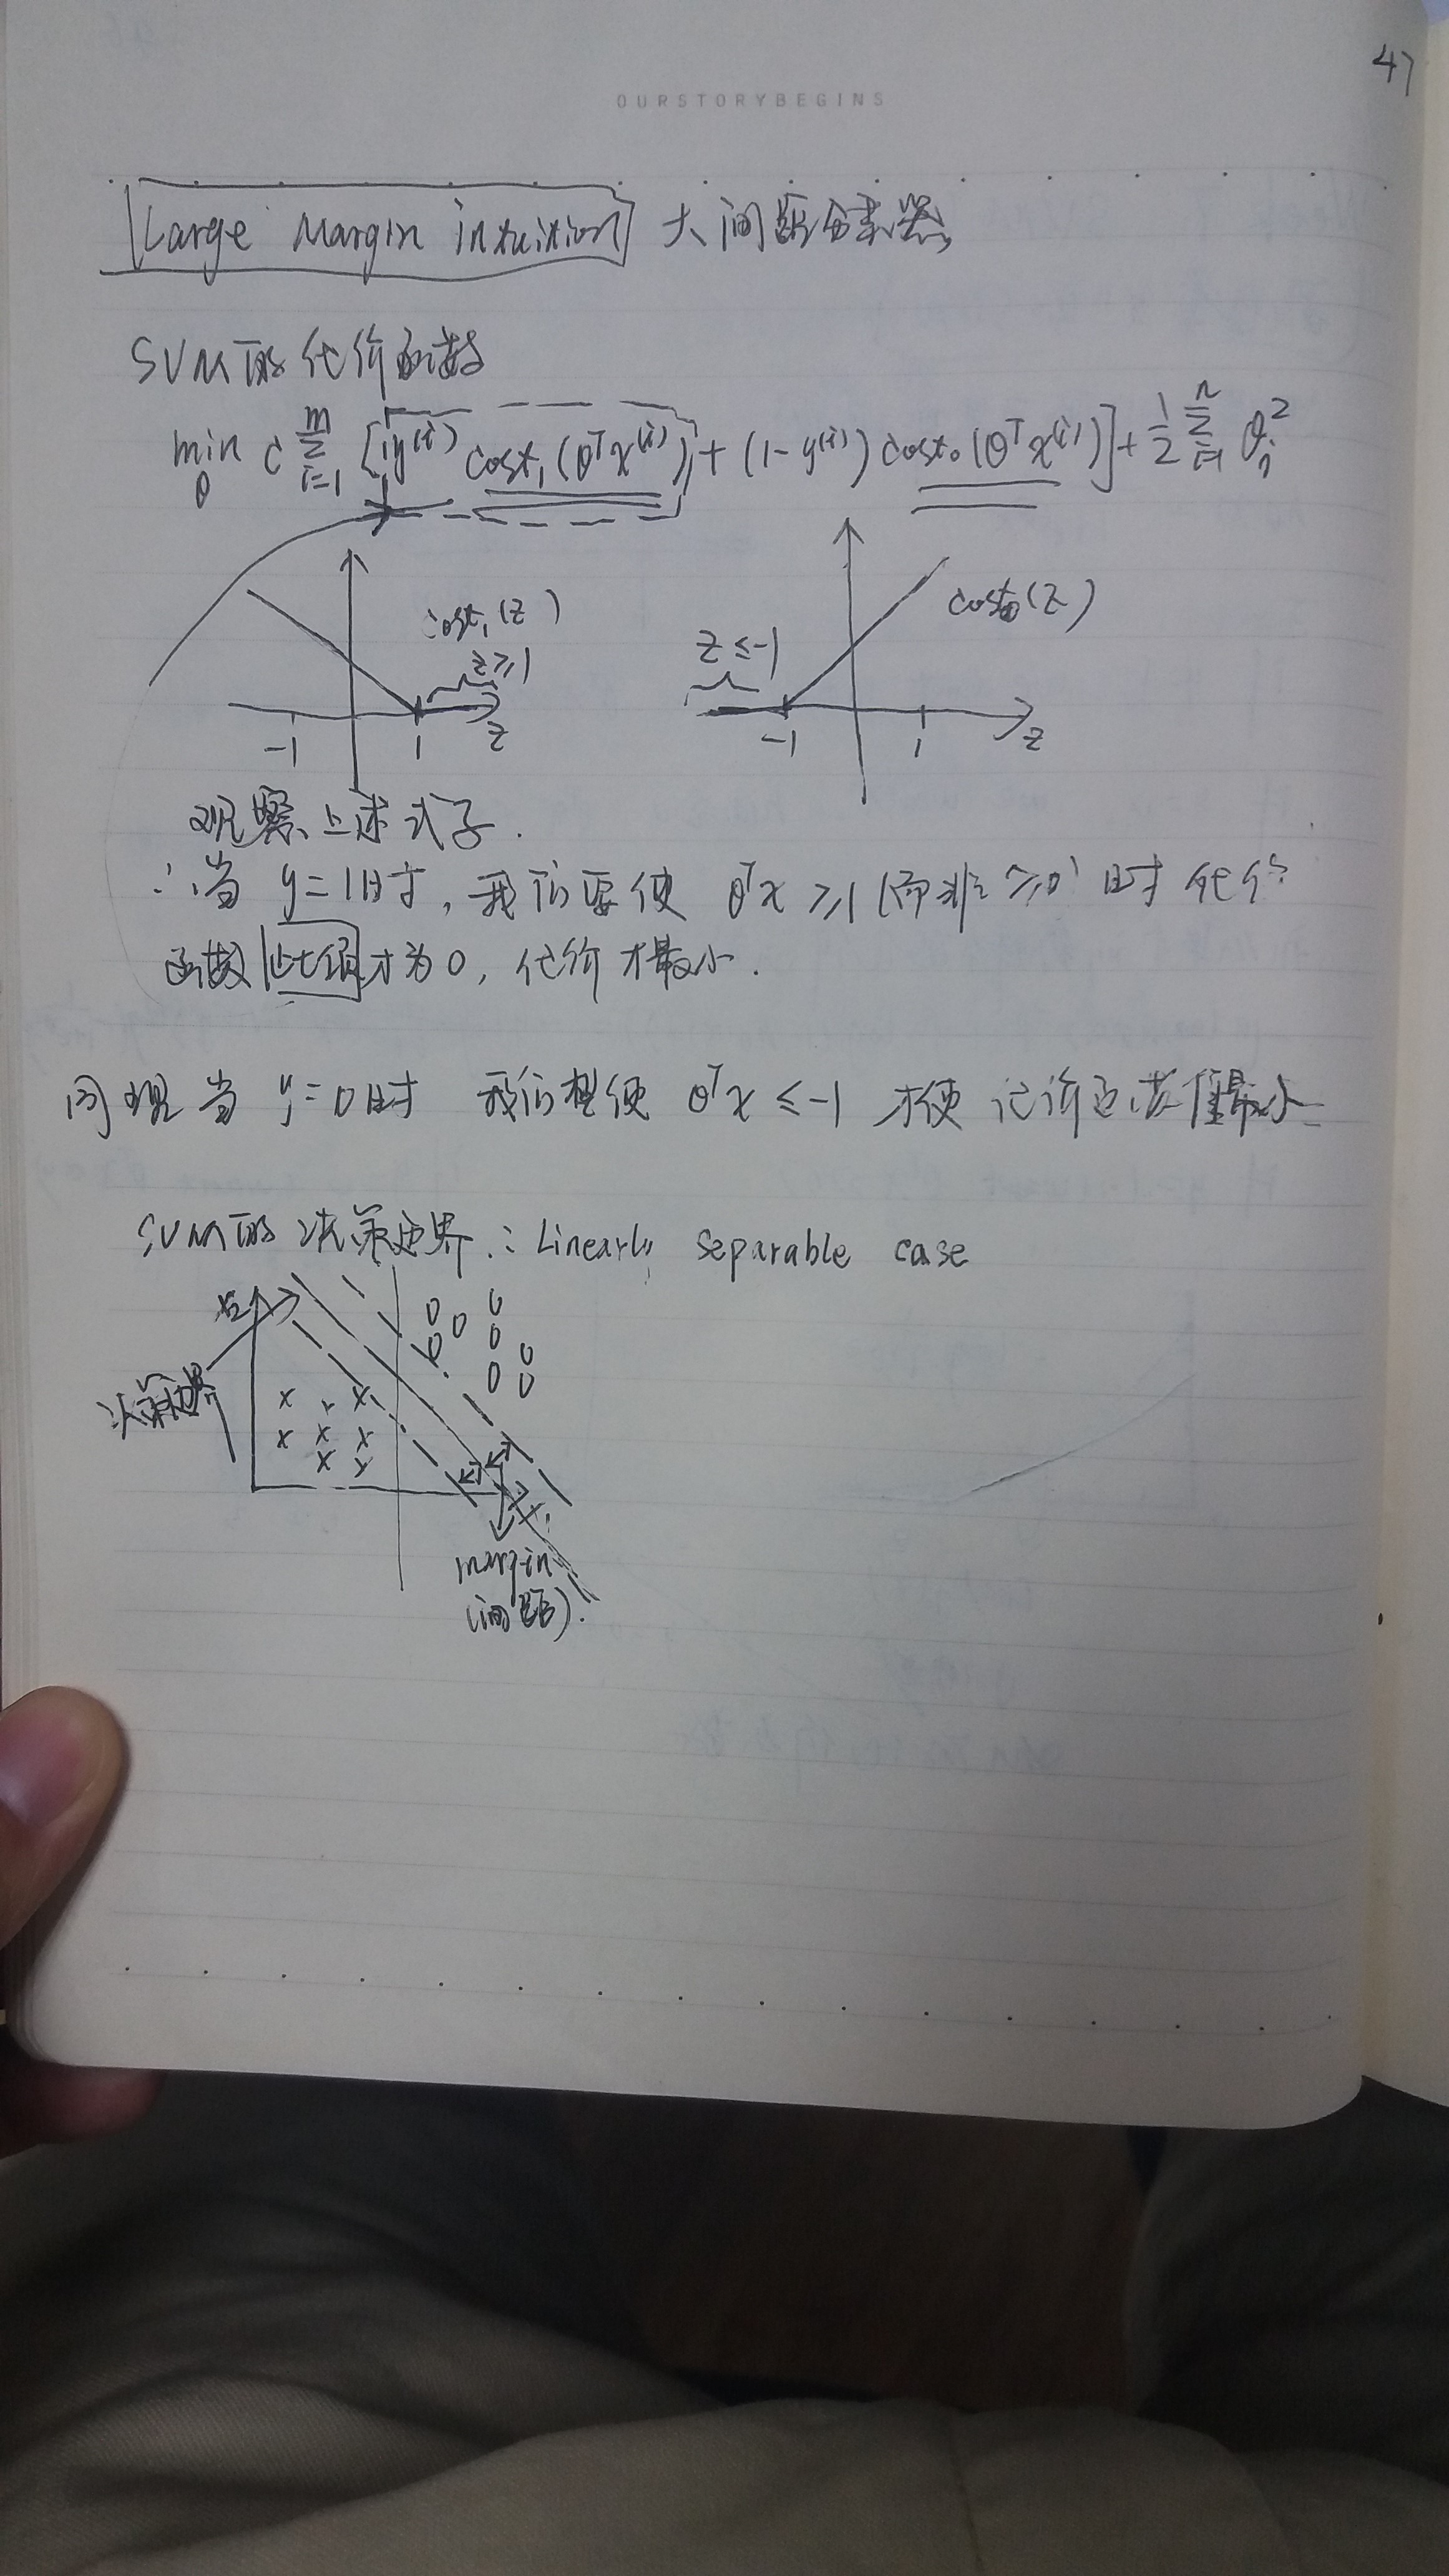 47
OURSTORYBEGINS
Large Margin intuition 大间距分类器
SVM的代价函数
min θ C Σ i=1 m [y⁽ⁱ⁾ cost₁(θᵀx⁽ⁱ⁾) + (1-y⁽ⁱ⁾) cost₀(θᵀx⁽ⁱ⁾)] + 1/2 Σ i=1 n θⱼ²
cost₁(z) cost₀(z)
z≥1 z≤-1
-1 1 z -1 1 z
观察上述式子.
∴当 y=1时, 我们要使 θᵀx≥1 (而非≥0) 时 代价
函数 此项 才为0, 代价才最小.
同理 当 y=0时 我们想使 θᵀx≤-1 才使 代价函数值最小
SVM的决策边界: Linearly separable case
x₂
决策边界
x₁
margin
(间距).